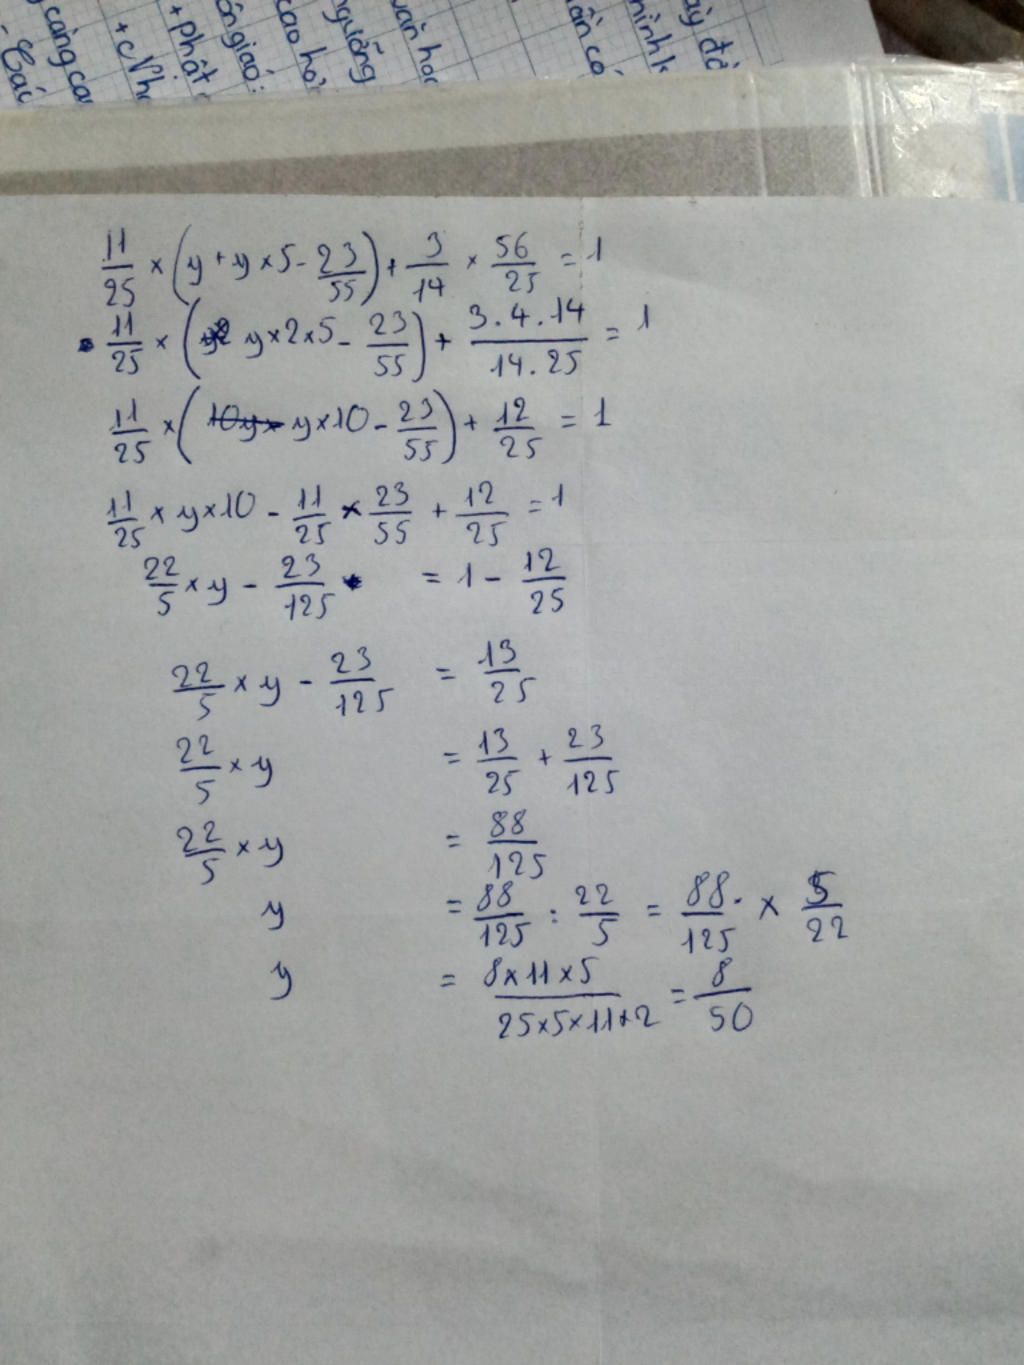 càng ca
- Các
+ c Nh
+ phật
ôn giáo:
cao hơ
ngưỡng
văn học
ần có
mình k
ầy đỏ
11/25 × (y + y × 5 - 23/55) + 3/14 × 56/25 = 1
11/25 × (y × 2 × 5 - 23/55) + 3.4.14/14.25 = 1
11/25 × (10y × y × 10 - 23/55) + 12/25 = 1
11/25 × y × 10 - 11/25 × 23/55 + 12/25 = 1
22/5 × y - 23/125 = 1 - 12/25
22/5 × y - 23/125 = 13/25
22/5 × y = 13/25 + 23/125
22/5 × y = 88/125
y = 88/125 : 22/5 = 88/125 × 5/22
y = 8×11×5/25×5×11×2 = 8/50